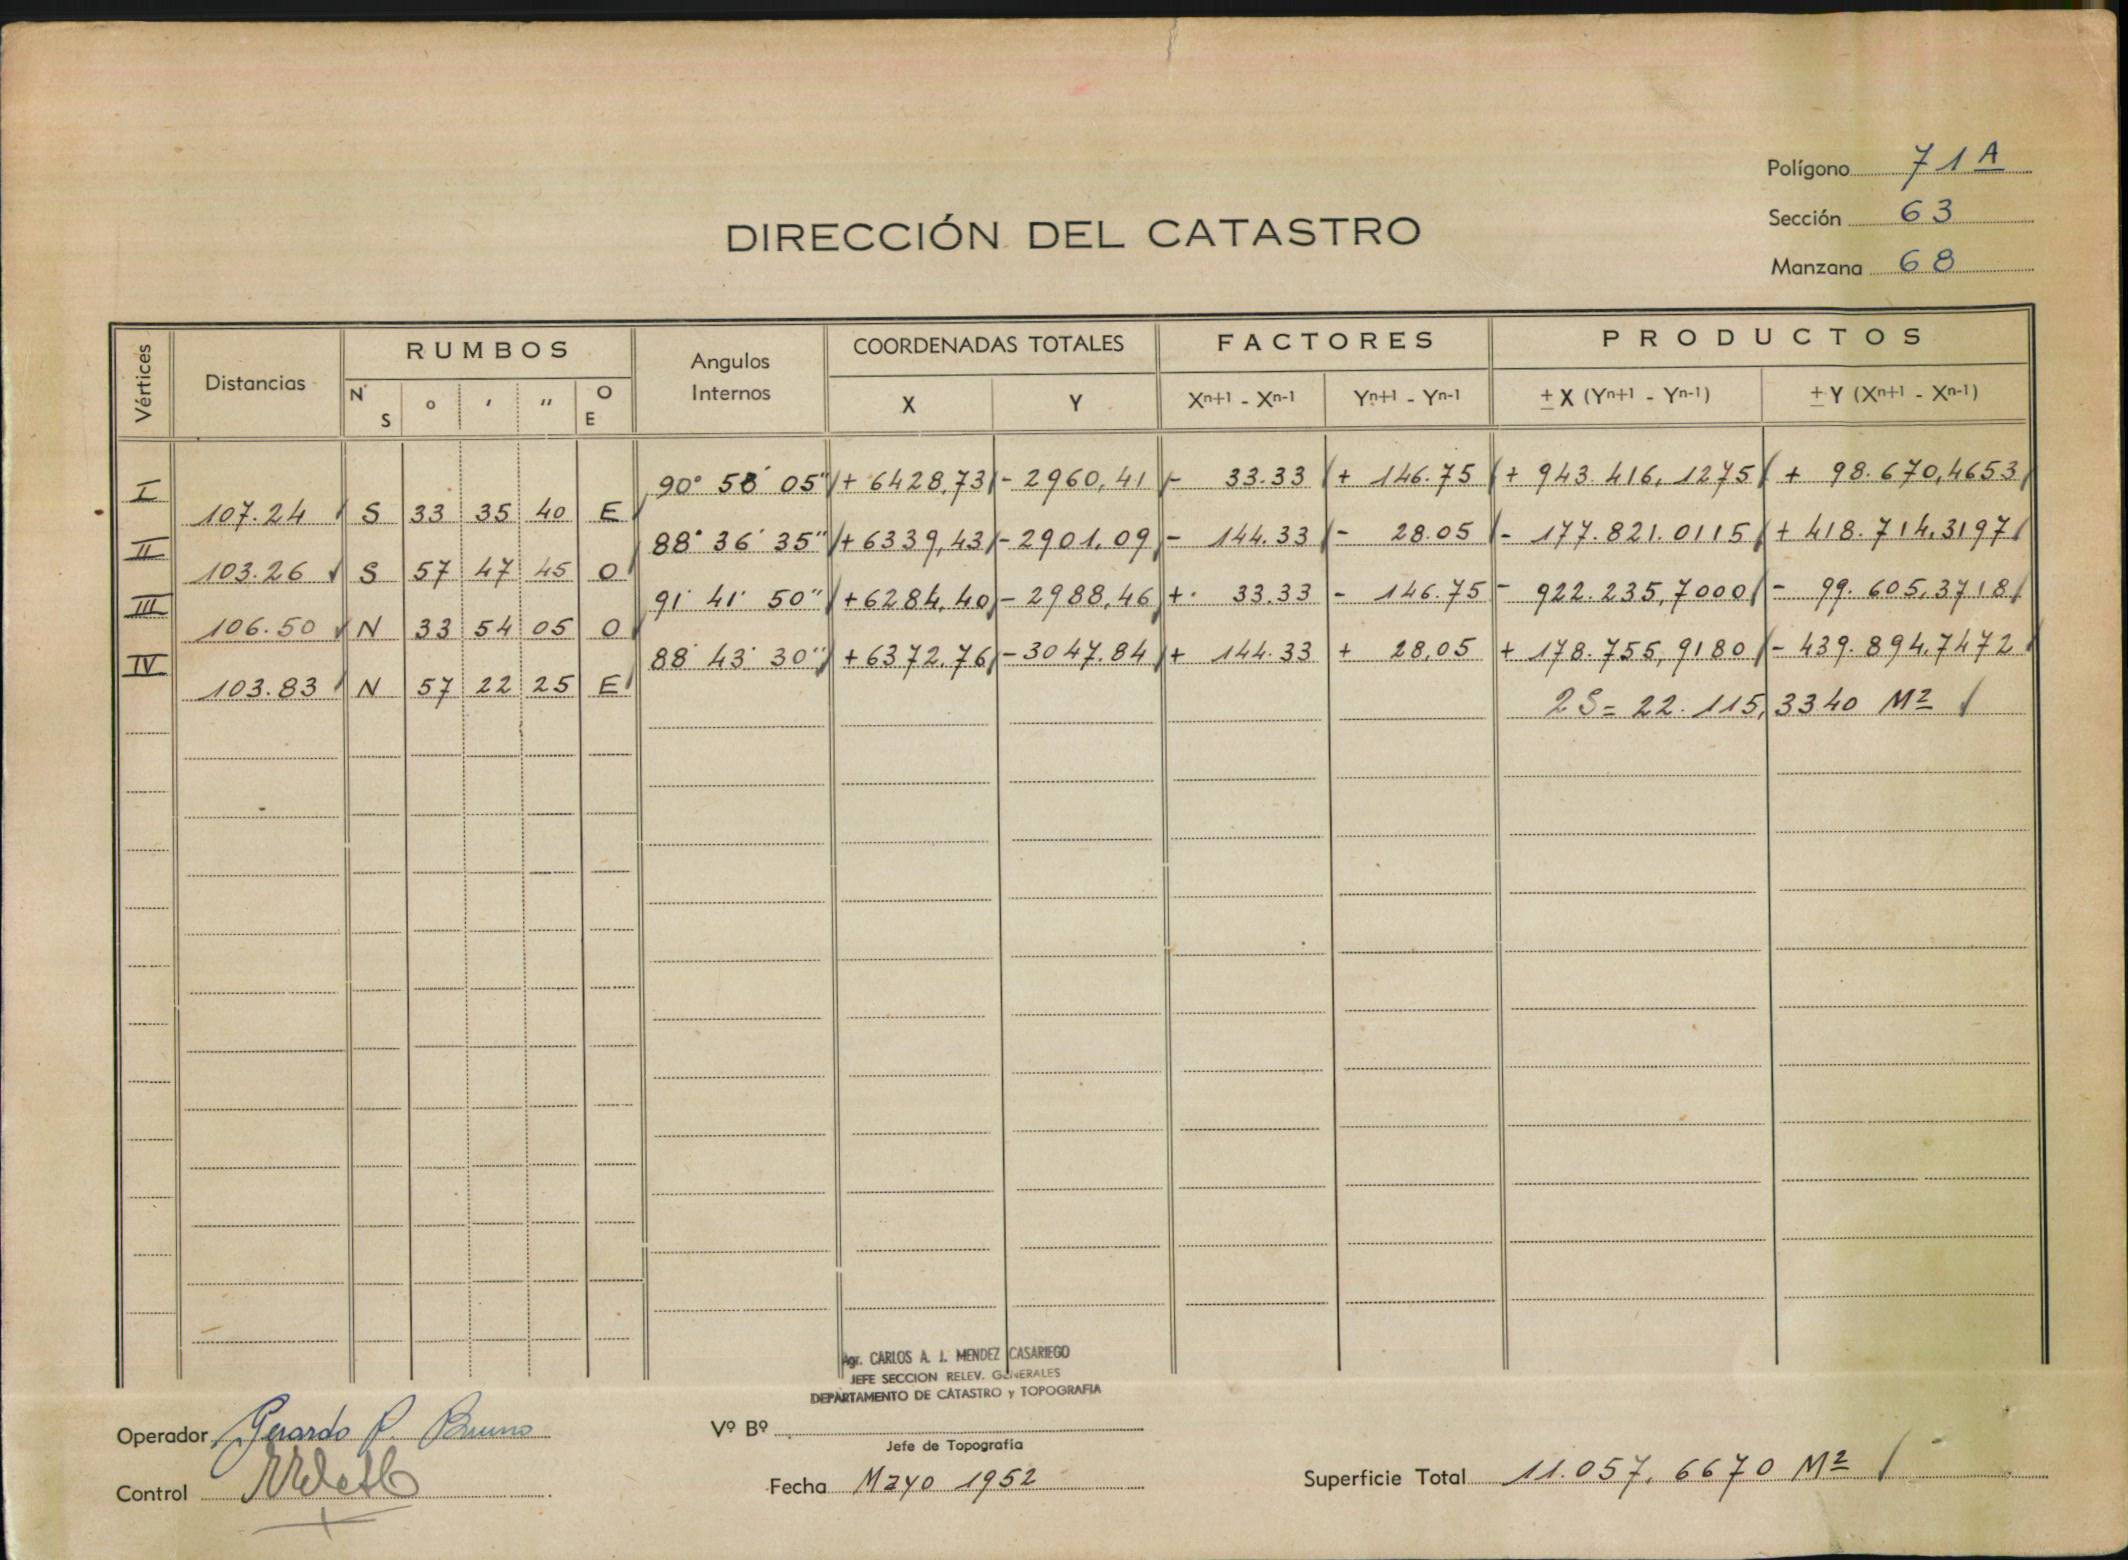 Polígono 71A
Sección 63
Manzana 68
DIRECCIÓN DEL CATASTRO
Vértices Distancias RUMBOS Angulos Internos COORDENADAS TOTALES FACTORES PRODUCTOS
N S o ' " O E X Y Xn+1 - Xn-1 Yn+1 - Yn-1 ± X (Yn+1 - Yn-1) ± Y (Xn+1 - Xn-1)
I 90° 58' 05" + 6428,73 - 2960,41 - 33.33 + 146.75 + 943.416,1275 + 98.670,4653
107.24 S 33 35 40 E
II 88° 36' 35" + 6339,43 - 2901,09 - 144.33 - 28.05 - 177.821.0115 + 418.714,3197
103.26 S 57 47 45 O
III 91' 41' 50" + 6284,40 - 2988,46 + 33.33 - 146.75 - 922.235,7000 - 99.605,3718
106.50 N 33 54 05 O
IV 88' 43' 30" + 6372,76 - 3047.84 + 144.33 + 28,05 + 178.755,9180 - 439.894,7472
103.83 N 57 22 25 E
2S = 22.115,3340 M2
Agr. CARLOS A. J. MENDEZ CASARIEGO
JEFE SECCION RELEV. GENERALES
DEPARTAMENTO DE CATASTRO y TOPOGRAFIA
Operador Gerardo P. Bruno
Vº Bº
Jefe de Topografía
Control
Fecha Mayo 1952
Superficie Total 11.057,6670 M2